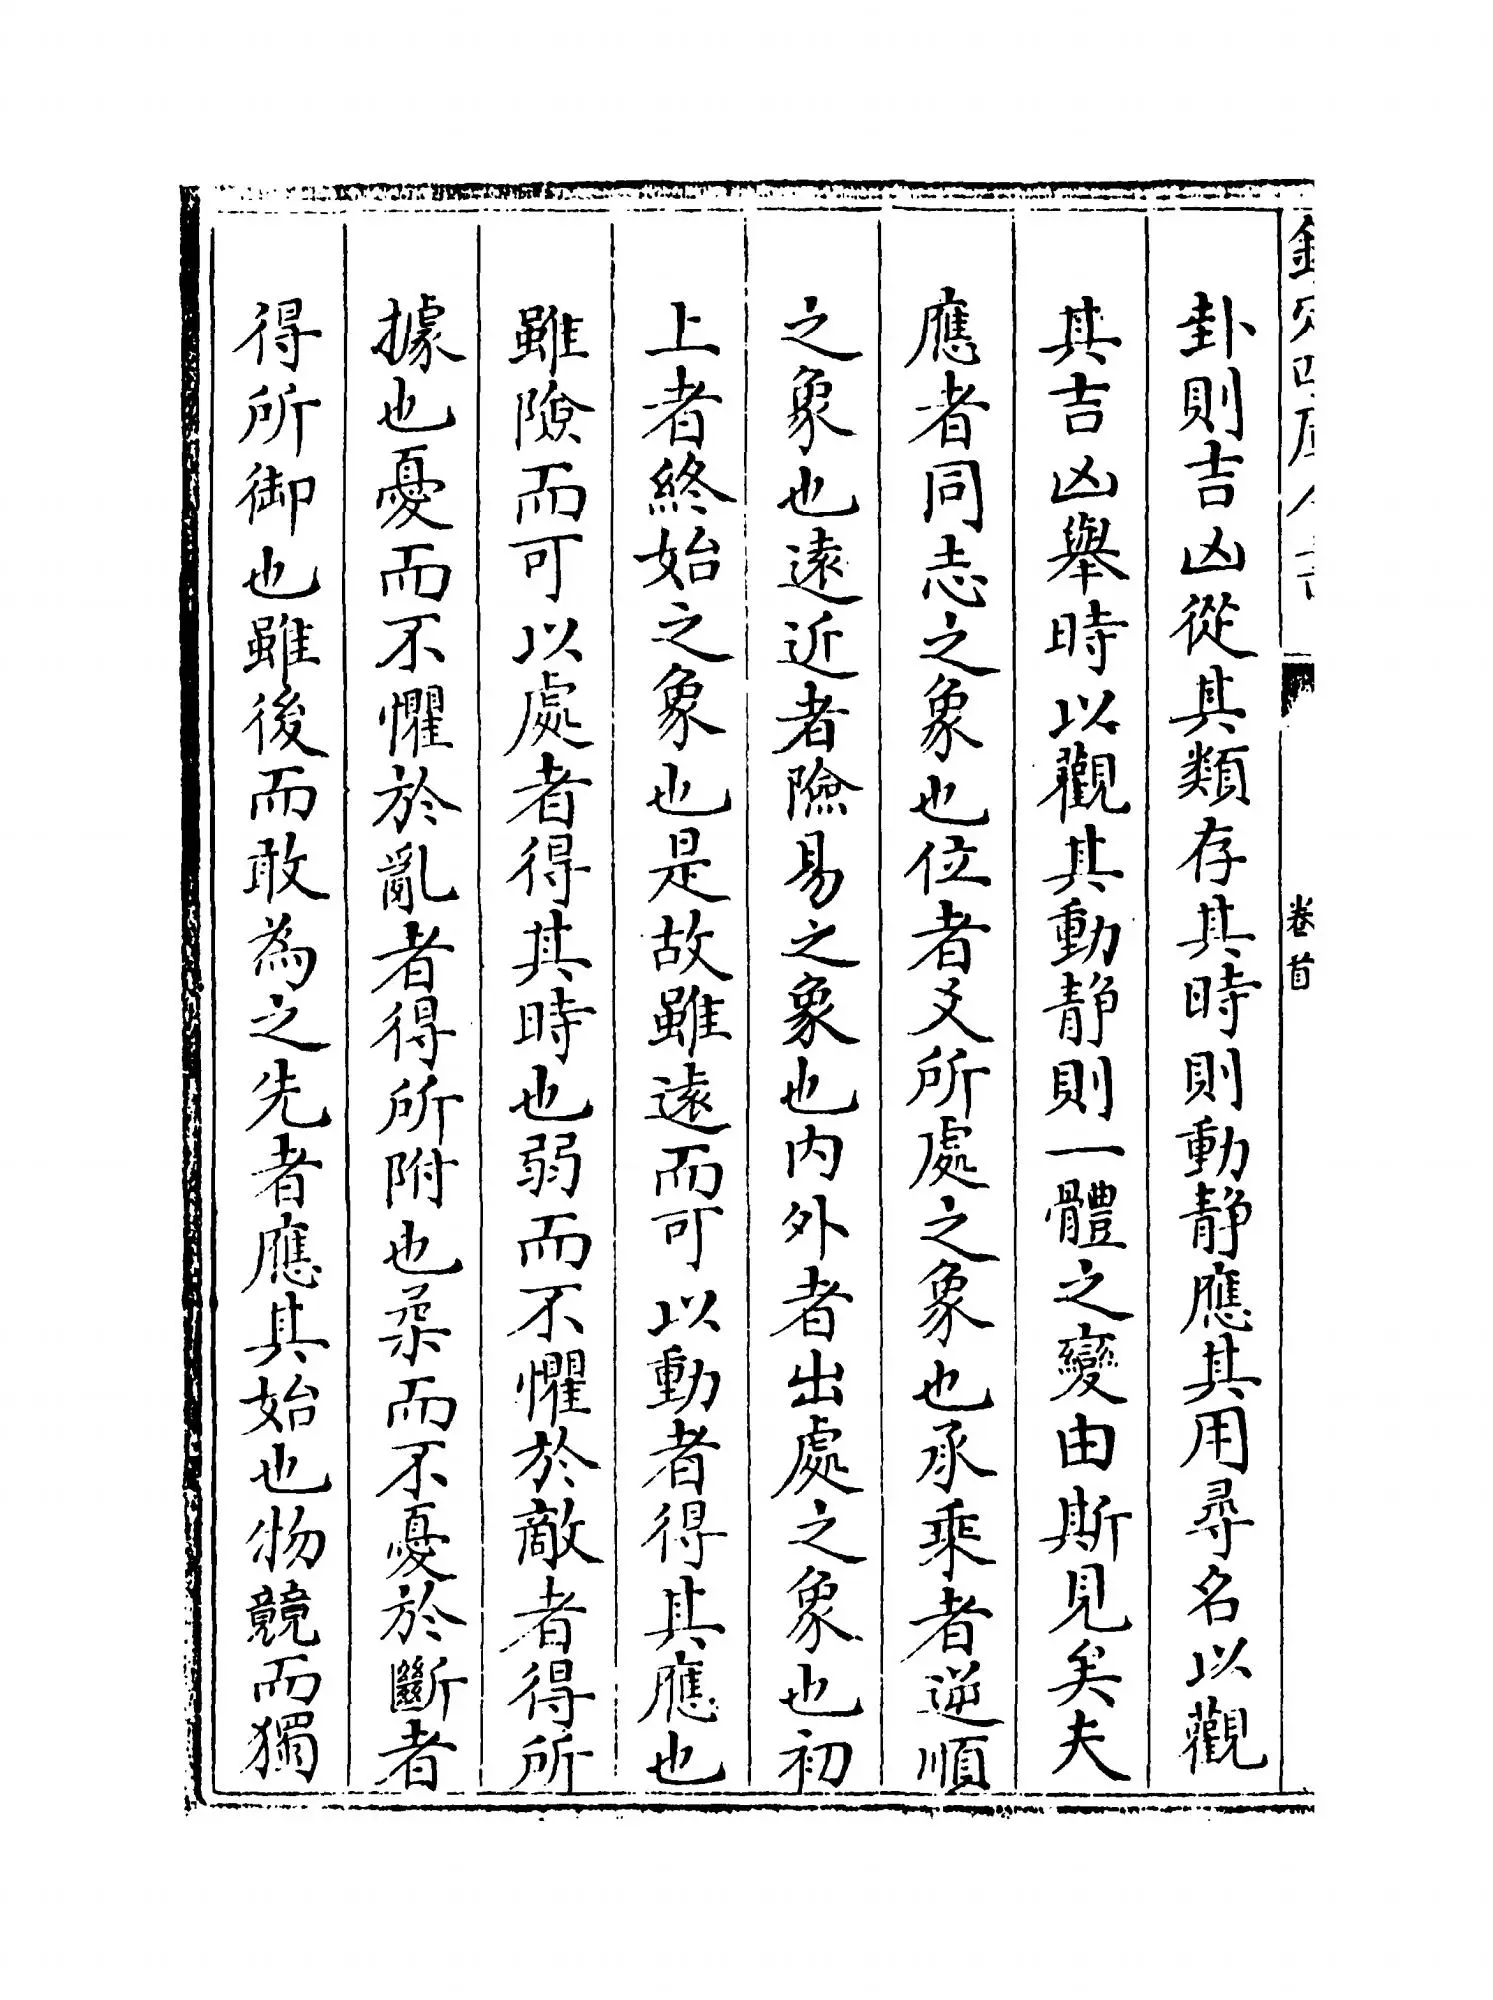 卦則吉凶從其類存其時則動静應其用尋名以觀
其吉凶舉時以觀其動静則一體之變由斯見矣夫
應者同志之象也位者爻所處之象也承乘者逆順
之象也遠近者險易之象也内外者出處之象也初
上者終始之象也是故雖遠而可以動者得其應也
雖險而可以處者得其時也弱而不懼於敵者得所
據也憂而不懼於亂者得所附也柔而不憂於斷者
得所御也雖後而敢為之先者應其始也物競而獨
卷首